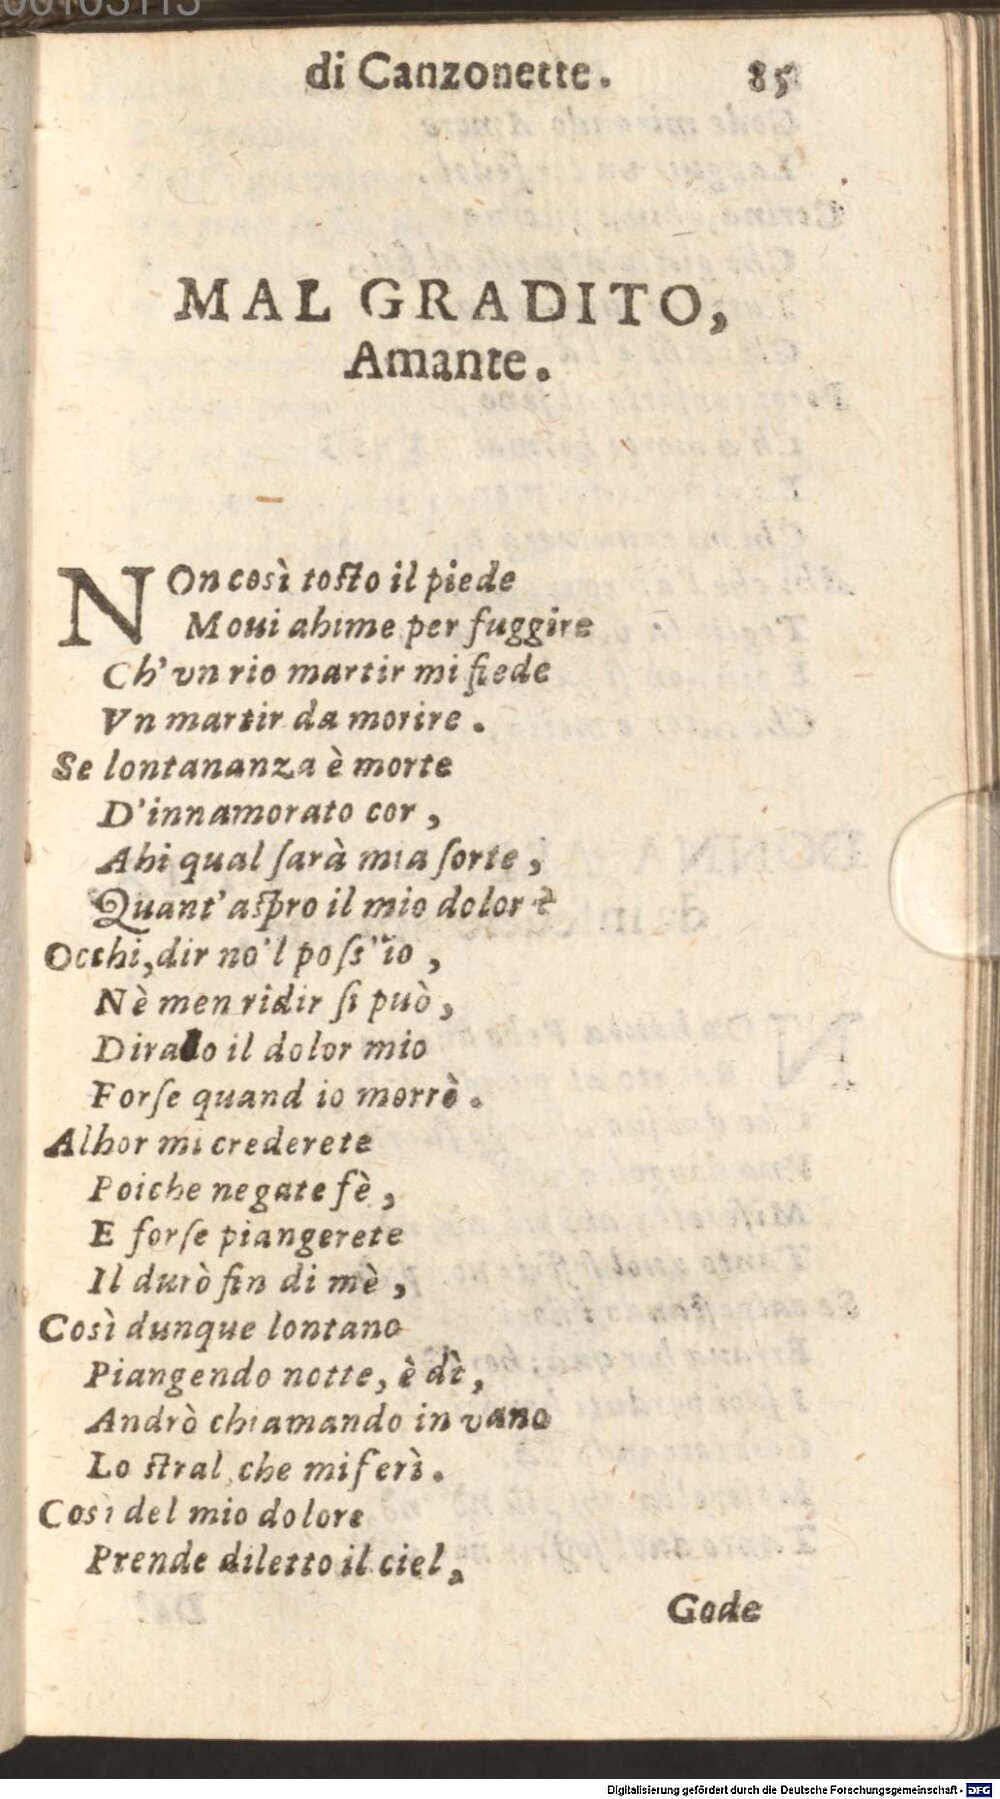 di Canzonette. 85
MAL GRADITO,
Amante.
NOn così tosto il piede
Moui ahime per fuggire
Ch'vn rio martir mi fiede
Vn martir da morire.
Se lontananza è morte
D'innamorato cor,
Ahi qual sarà mia sorte,
Quant'aspro il mio dolor?
Occhi, dir no'l poss'io,
Nè men ridir si può,
Diralo il dolor mio
Forse quand io morrò.
Alhor mi crederete
Poiche negate fè,
E forse piangerete
Il durò fin di mè,
Così dunque lontano
Piangendo notte, è dì,
Andrò chiamando in vano
Lo stral che mi ferì.
Così del mio dolore
Prende diletto il ciel,
Gode
Digitalisierung gefördert durch die Deutsche Forschungsgemeinschaft - DFG